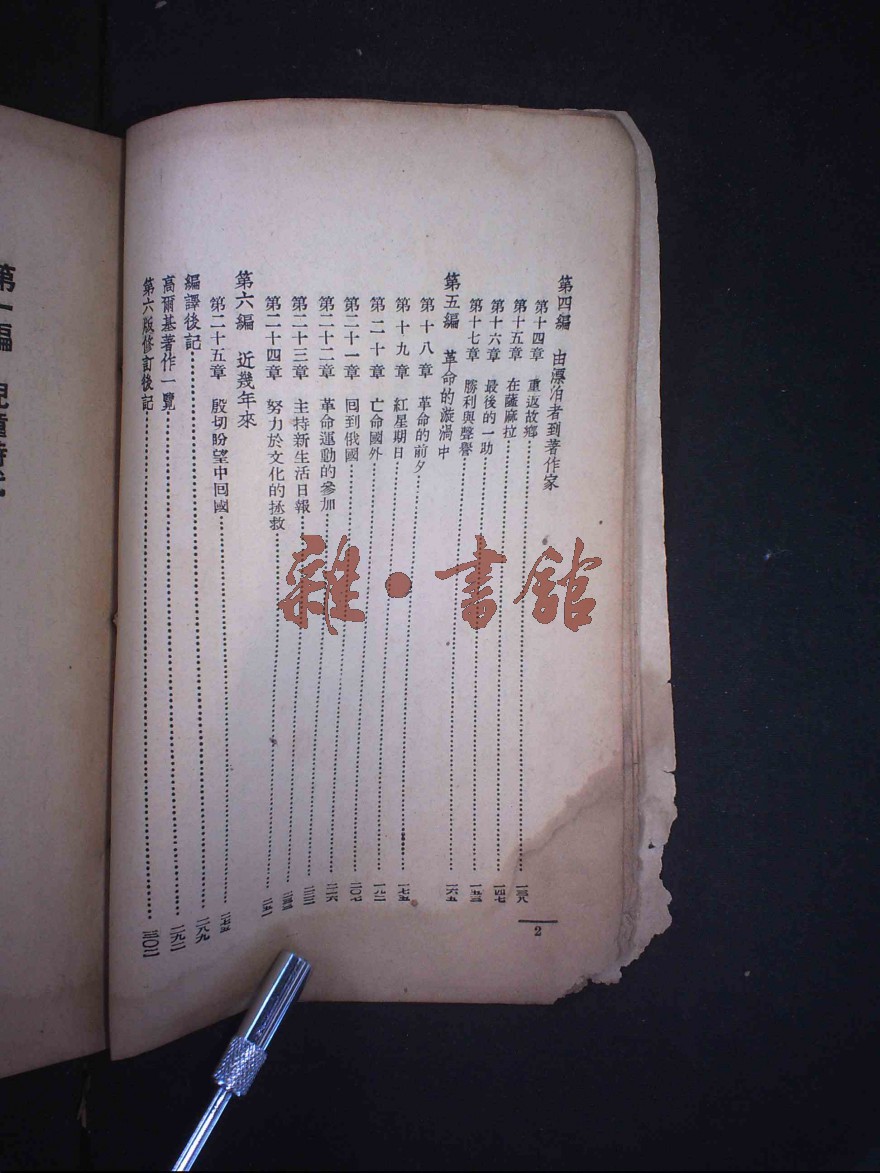 第四編　由漂泊者到著作家
第十四章　重返故鄉……一三八
第十五章　在薩麻拉……一四七
第十六章　最後的一助……一五三
第十七章　勝利與聲譽……一六五
第五編　革命的漩渦中
第十八章　革命的前夕……一七五
第十九章　紅星期日……一八二
第二十章　亡命國外……二〇七
第二十一章　回到俄國……二一六
第二十二章　革命運動的參加
第二十三章　主持新生活日報
第二十四章　努力於文化的拯救
第六編　近幾年來
第二十五章　殷切盼望中回國……二七五
編譯後記……二八九
高爾基著作一覽……二九二
第六版修訂後記……三〇二
2
第一編　兒童時代
雜·書館